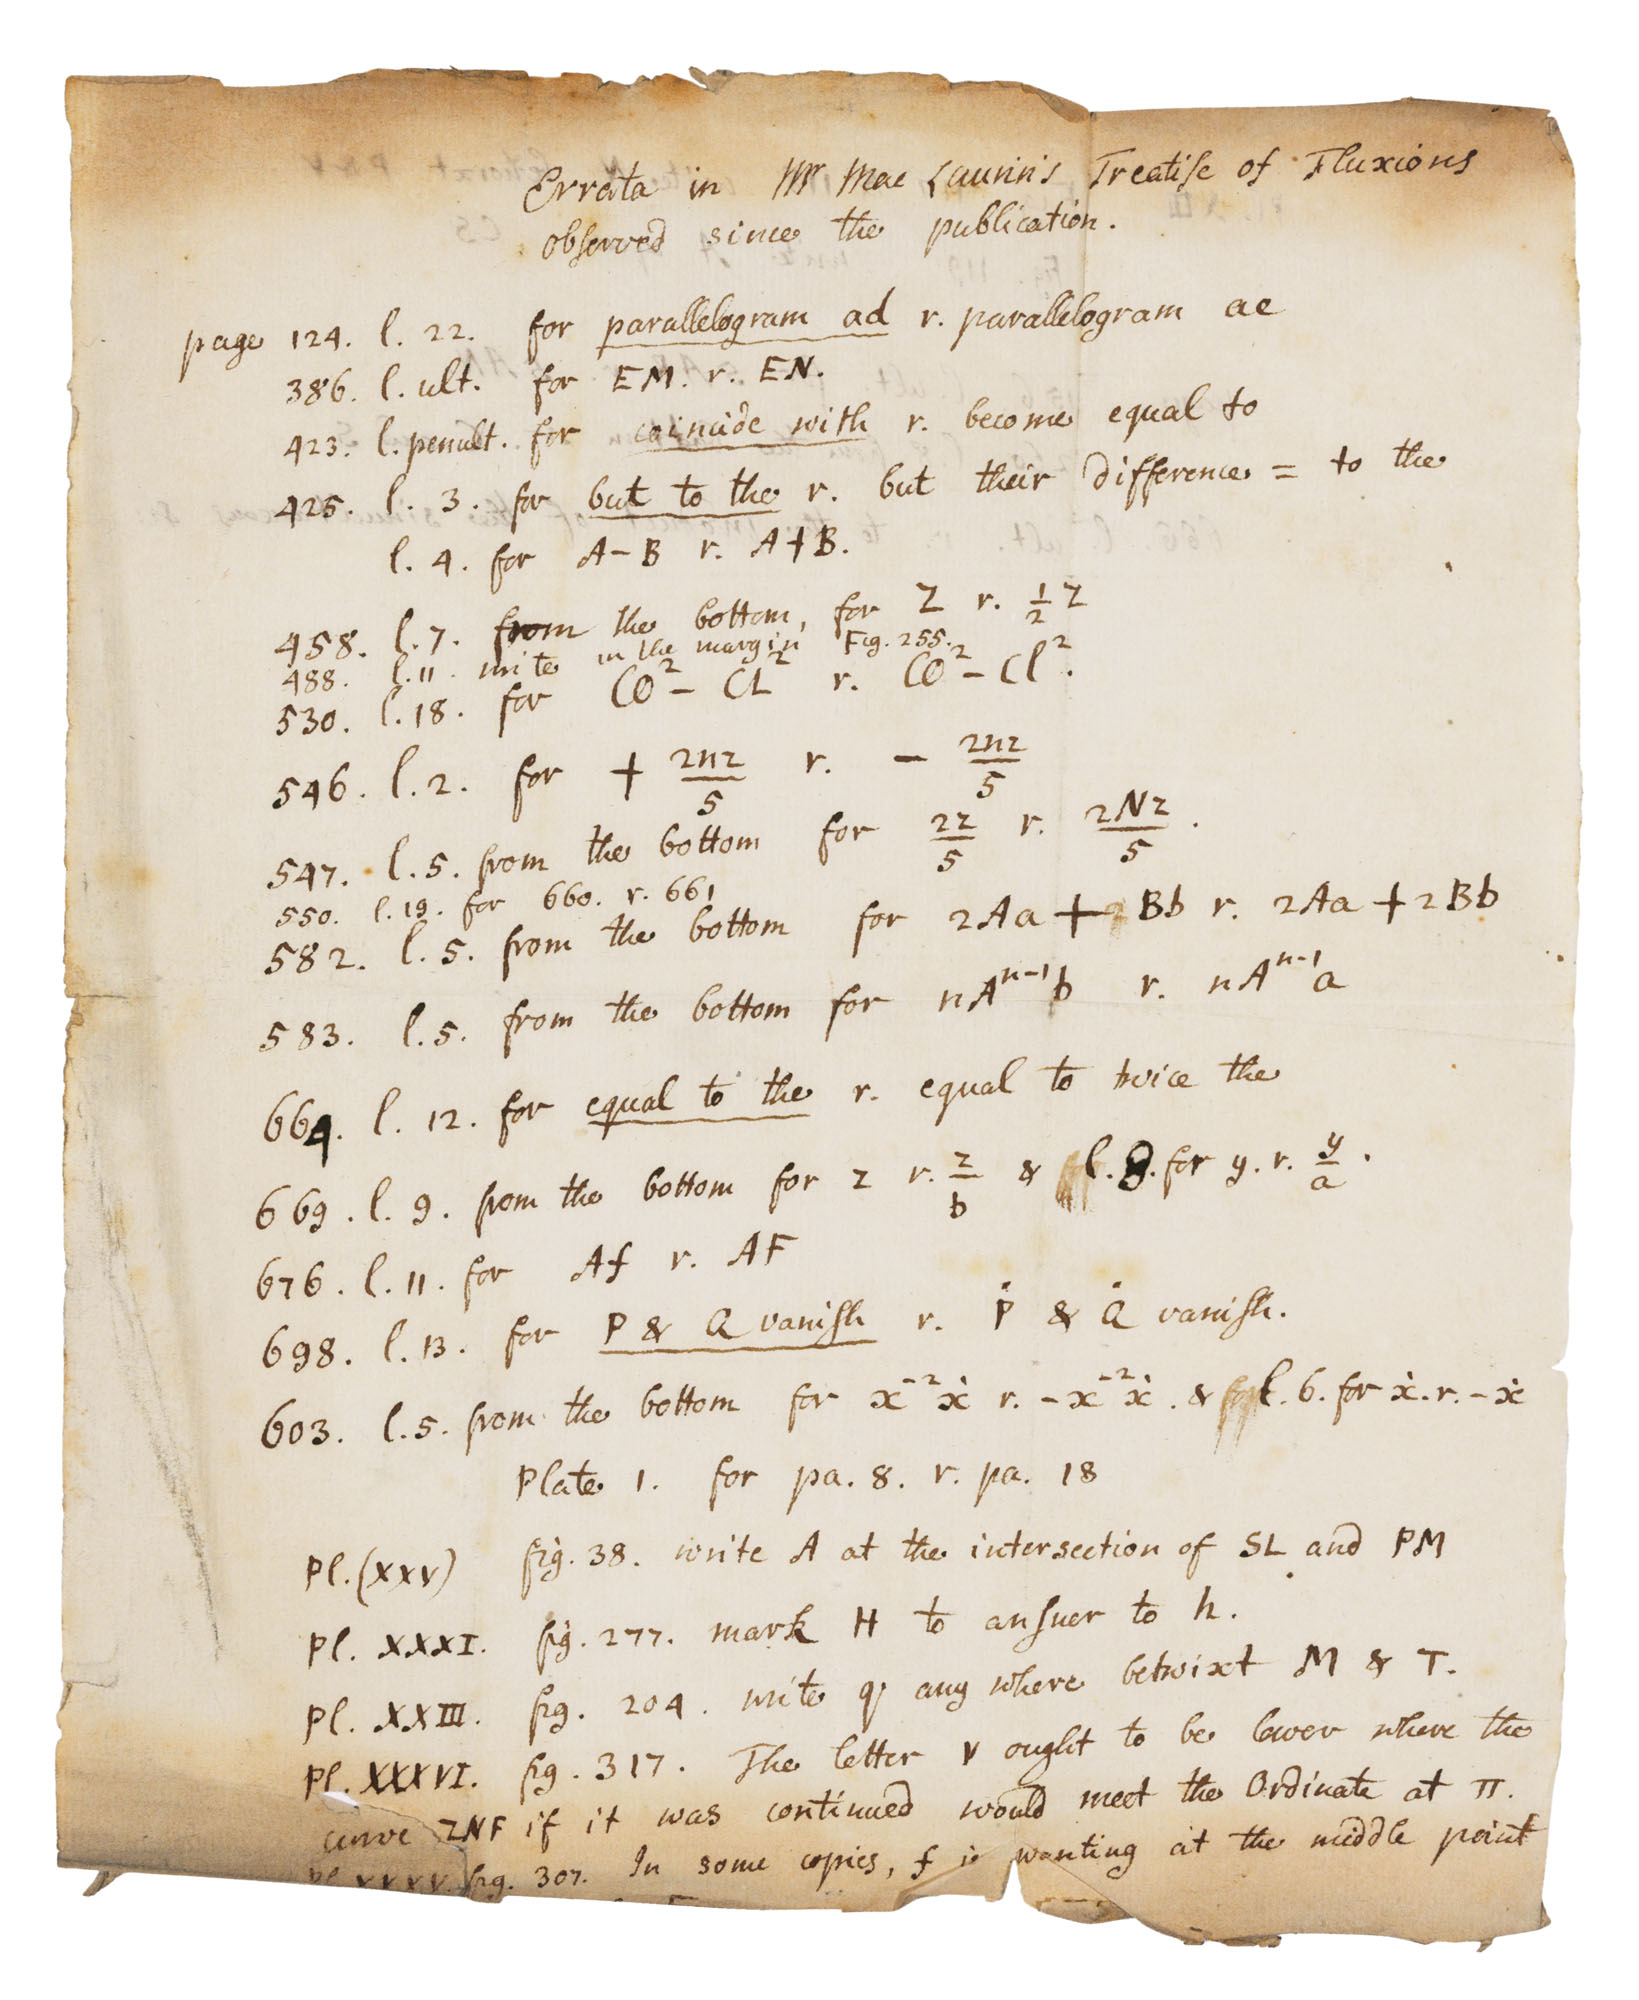 Errata in Mr Mac Laurin's Treatise of Fluxions
observed since the publication.
page 124. l. 22. for parallelogram ad r. parallelogram ae
386. l. ult. for EM. r. EN.
423. l. penult. for coincide with r. become equal to
425. l. 3. for but to the r. but their difference = to the
l. 4. for A - B r. A + B.
458. l. 7. from the bottom, for Z r. 1/2 Z
488. l. 11. write in the margin Fig. 255.
530. l. 18. for CO² - CL² r. CO² - Cl².
546. l. 2. for + 2nz/5 r. - 2nz/5
547. l. 5. from the bottom for 2z/5 r. 2Nz/5.
550. l. 19. for 660. r. 661
582. l. 5. from the bottom for 2Aa + Bb r. 2Aa + 2Bb
583. l. 5. from the bottom for nAⁿ⁻¹b r. nAⁿ⁻¹a
664. l. 12. for equal to the r. equal to twice the
669. l. 9. from the bottom for z r. z/b & l. 8. for y. r. y/a.
676. l. 11. for Af r. AF
698. l. 13. for P & Q vanish r. Ṗ & Q̇ vanish.
603. l. 5. from the bottom for x⁻²ẋ r. -x⁻²ẋ. & l. 6. for ẋ. r. -ẋ
Plate 1. for pa. 8. r. pa. 18
Pl. (XXV) fig. 38. write A at the intersection of SL and PM
Pl. XXXI. fig. 277. mark H to answer to h.
Pl. XXIII. fig. 204. write q any where betwixt M & T.
Pl. XXXVI. fig. 317. The letter V ought to be lower where the
curve ZNF if it was continued would meet the Ordinate at π.
Pl. XXXV. fig. 307. In some copies, f is wanting at the middle point